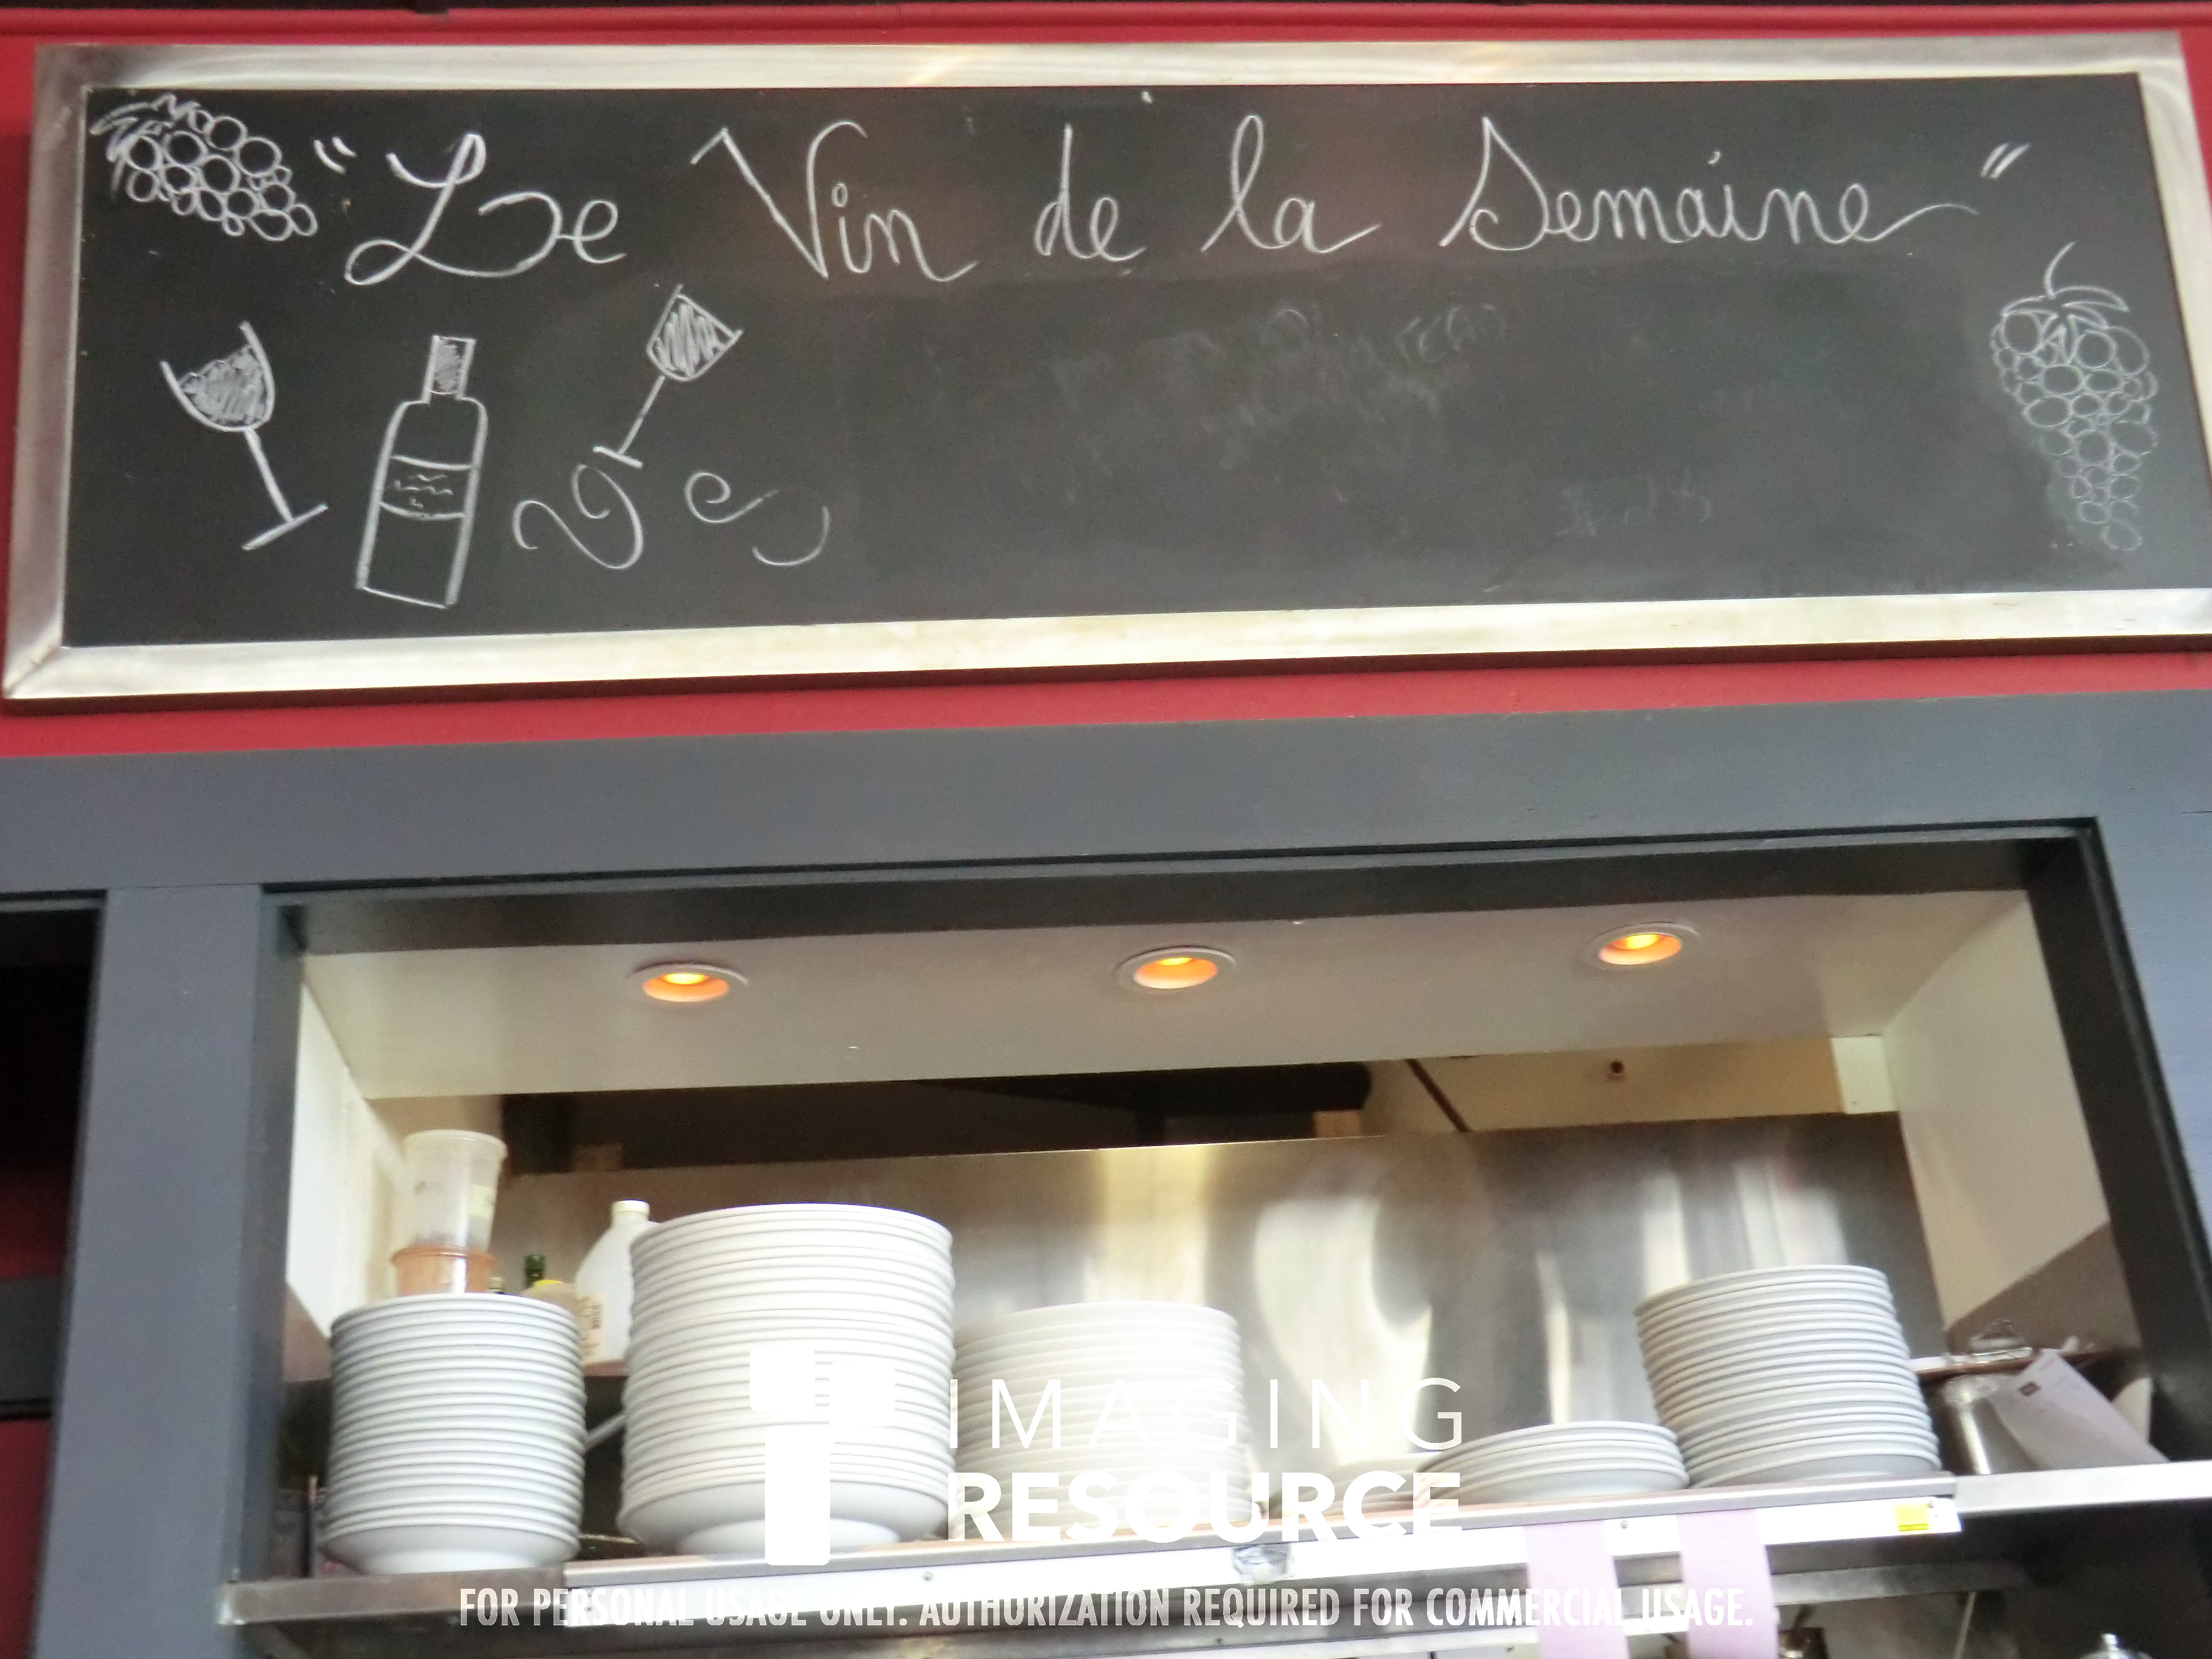 "Le Vin de la Semaine"
IMAGING
RESOURCE
FOR PERSONAL USAGE ONLY. AUTHORIZATION REQUIRED FOR COMMERCIAL USAGE.